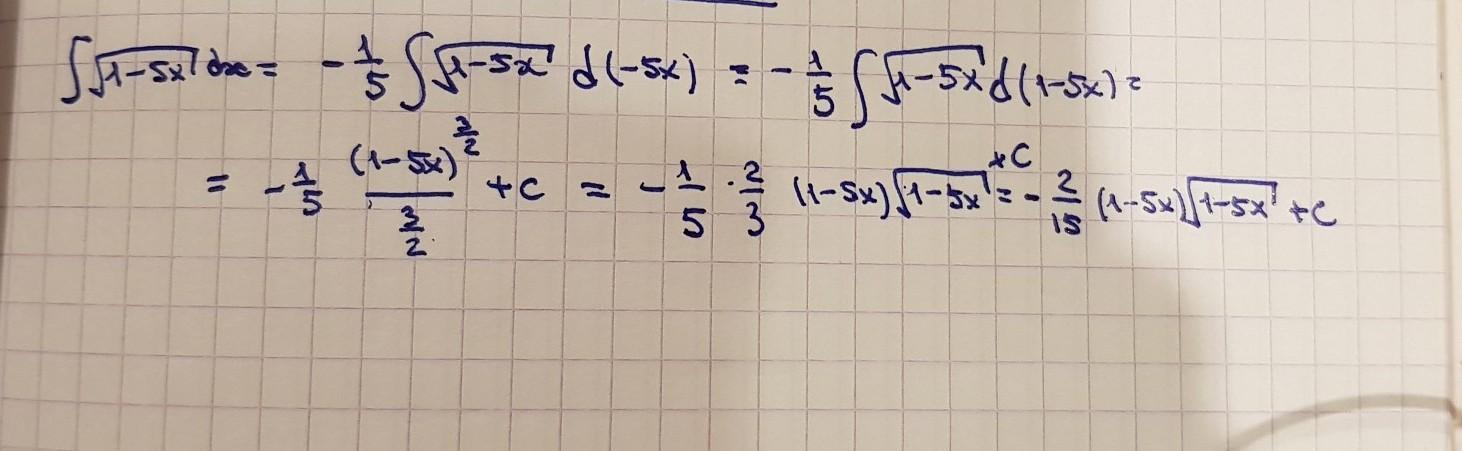 ∫√(1-5x) dx = -1/5 ∫√(1-5x) d(-5x) = -1/5 ∫√(1-5x) d(1-5x) =
= -1/5 (1-5x)^(3/2) / (3/2) + C = -1/5 · 2/3 (1-5x)√(1-5x) + C = -2/15 (1-5x)√(1-5x) + C